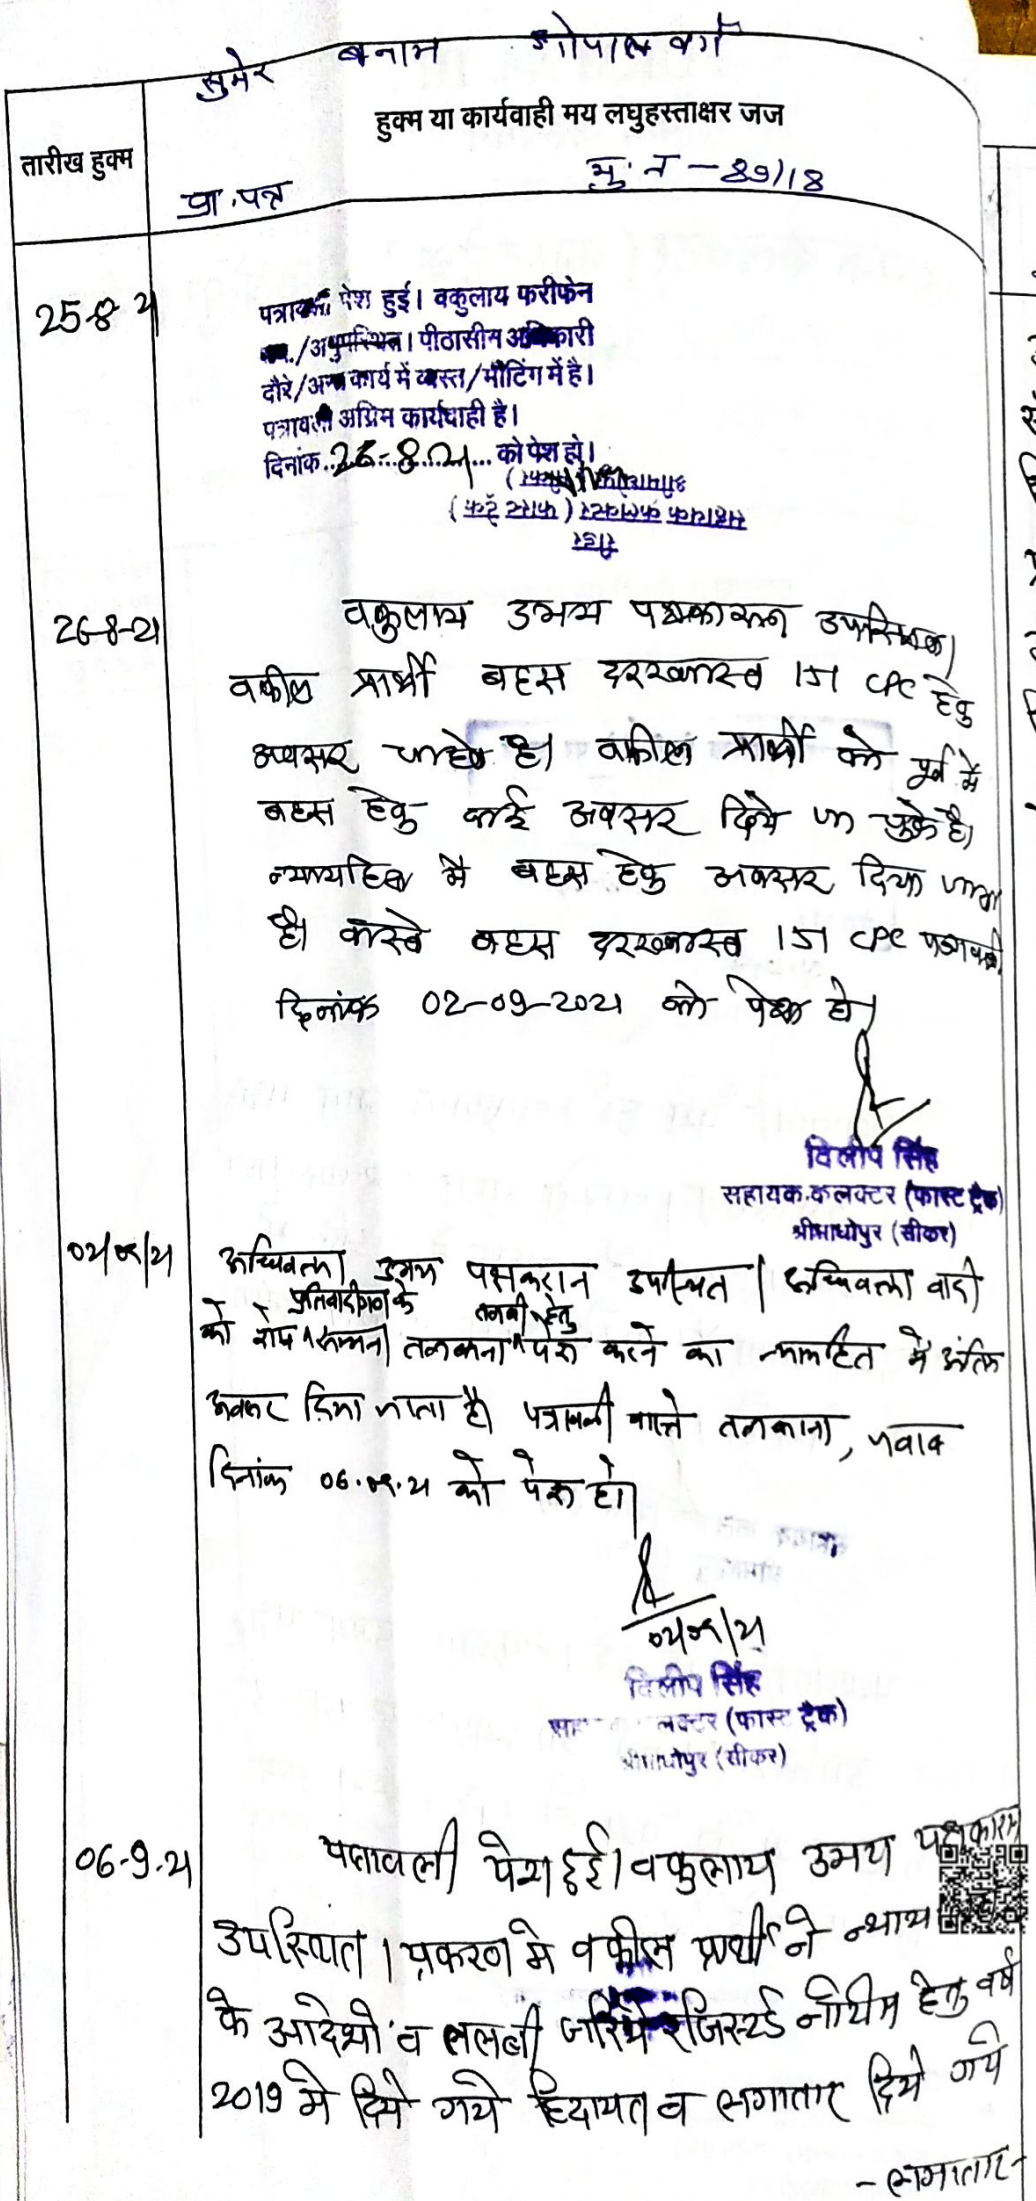 सुमेर बनाम गोपाल वगै
हुक्म या कार्यवाही मय लघुहस्ताक्षर जज
तारीख हुक्म
प्रा. पत्र मु. न - 89/18
25-8-21
पत्रावली पेश हुई। वकुलाय फरीकेन
/अनुपस्थित। पीठासीन अधिकारी
दौरे/अन्य कार्य में व्यस्त/मीटिंग में है।
पत्रावली अग्रिम कार्यवाही है।
दिनांक..26-8-21... को पेश हो।
रीडर
सहायक कलक्टर (फास्ट ट्रैक)
श्रीमाधोपुर (सीकर)
26-8-21
वकुलाय उभय पक्षकारान उपस्थित।
वकील प्रार्थी बहस दरख्वास्त 151 CPC हेतु
अवसर चाहते है। वकील प्रार्थी को पूर्व में
बहस हेतु कई अवसर दिये जा चुके है।
न्यायहित में बहस हेतु अवसर दिया जाता
है। वास्ते बहस दरख्वास्त 151 CPC पत्रावली
दिनांक 02-09-2021 को पेश हो।
दिलीप सिंह
सहायक कलक्टर (फास्ट ट्रैक)
श्रीमाधोपुर (सीकर)
02/09/21
अधिवक्ता उभय पक्षकारान उपस्थित। अधिवक्ता वादी
को शेष प्रतिवादीगण के सम्मन तलबाना तलबी हेतु पेश करने का न्यायहित में अंतिम
अवसर दिया जाता है। पत्रावली वास्ते तलबाना, जवाब
दिनांक 06.09.21 को पेश हो।
02/09/21
दिलीप सिंह
कलक्टर (फास्ट ट्रैक)
श्रीमाधोपुर (सीकर)
06-9-21
पत्रावली पेश हुई। वकुलाय उभय पक्षकारान
उपस्थित। प्रकरण मे वकील प्रार्थी ने न्याया
के आदेशो व तलबी जरिये रजिस्टर्ड नोटिस हेतु वर्ष
2019 मे दिये गये हिदायत व लगातार दिये गये
- लगातार -